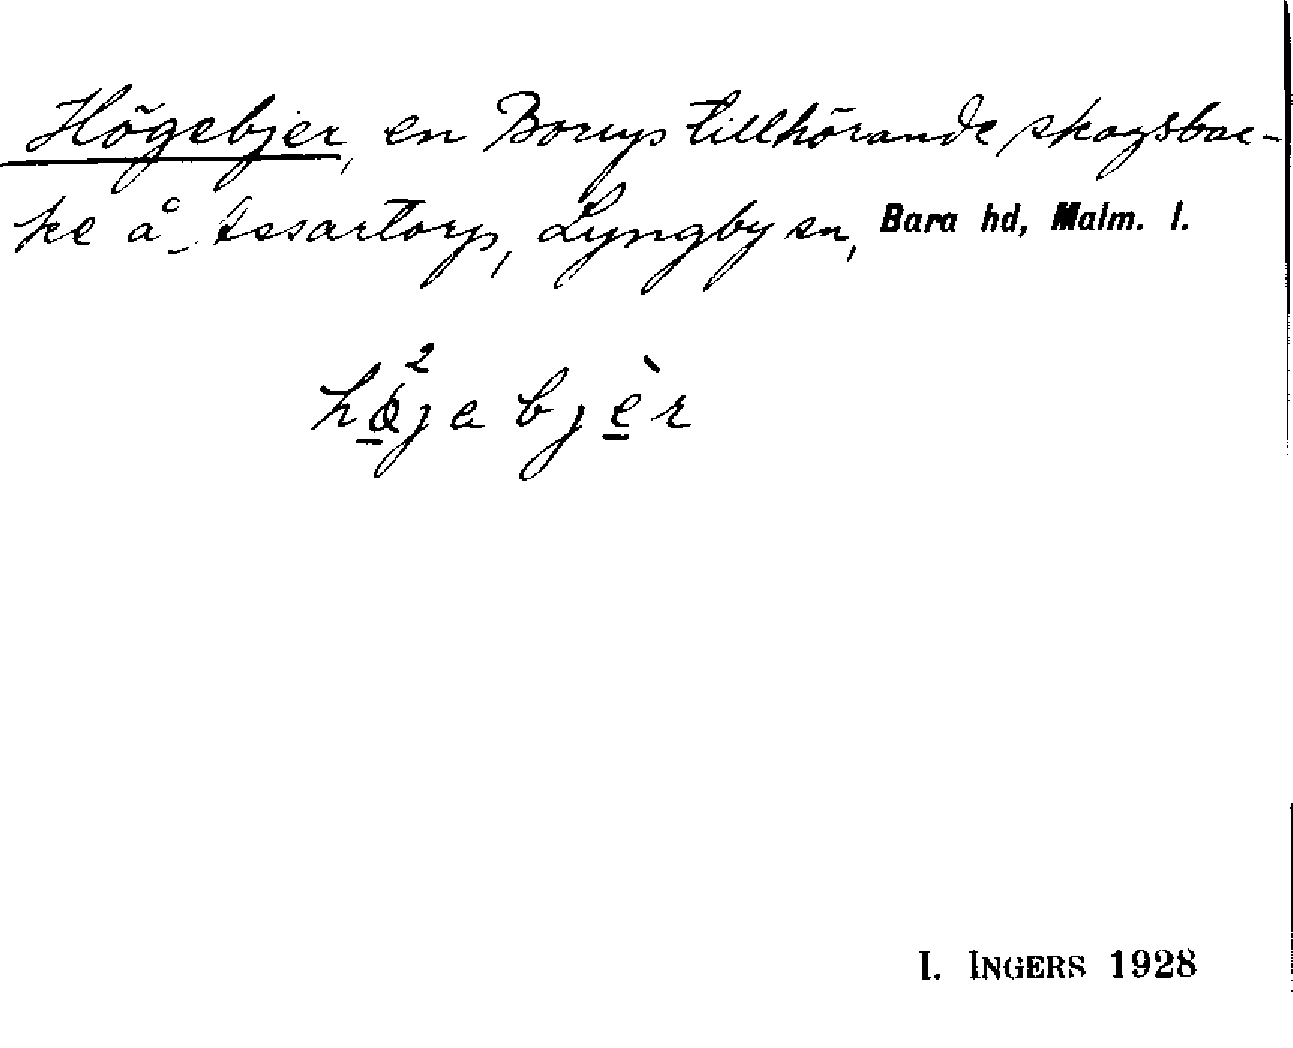 Högebjer, en Borups tillhörande skogsbac-
ke å Assartorp, Lyngby sn, Bara hd, Malm. l.
hø̠²ja bjè̠r
I. INGERS 1928